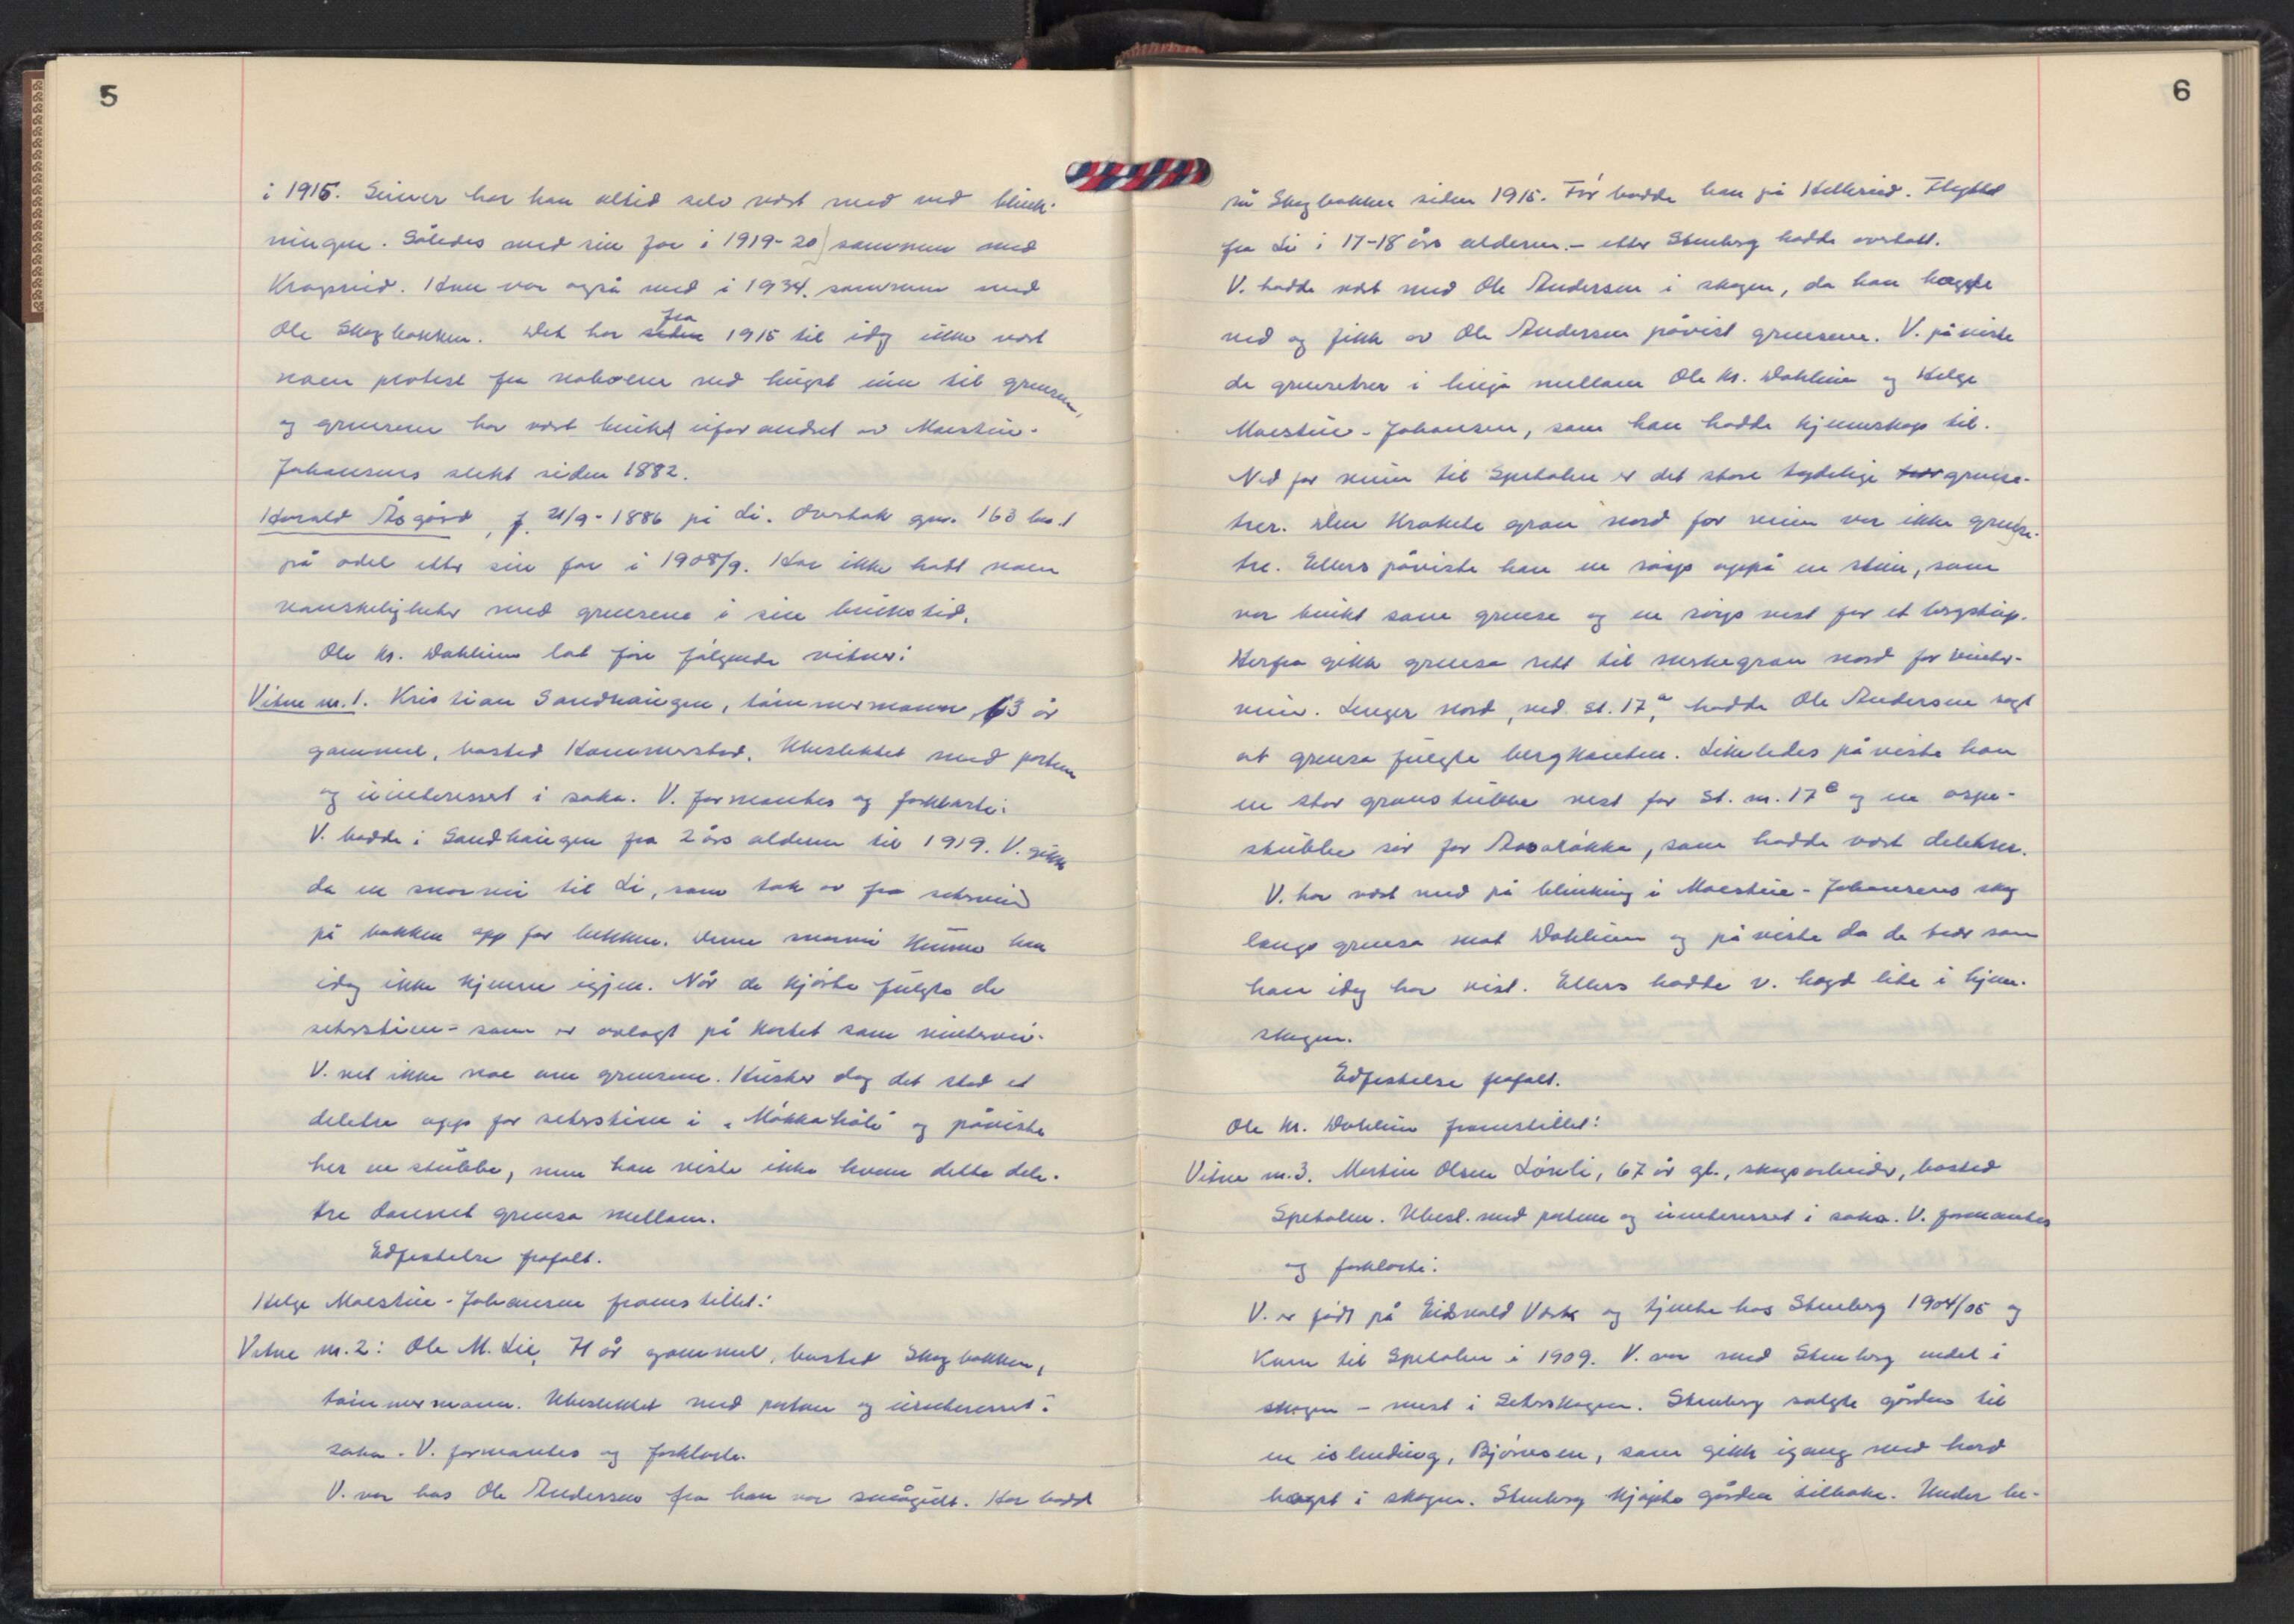 5
i 1915. Seiner har han altid selv vært med ved blink-
ningen. Således med sin far i 1919-20 sammen med
Kragsrud. Han var også med i 1934. sammen med
Ole Skogbakken. Det har fra 1915 til idag ikke vært
noen protest fra naboene ved hugst inn til grensen,
og grensene har vært brukt uforandret av Maestue-
Johansens slekt siden 1882.
Harald Åsgård, f. 21/9-1886 på Li. Overtok gnr. 163 bnr. 1
på odel etter sin far i 1908/9. Har ikke hatt noen
vanskeligheter med grensene i sin brukstid.
Ole Kr. Dahlum lot føre følgende vitner:
Vitne nr. 1. Kristian Sandhaugen, tømmermann, 63 år
gammel, bosted Hammerstad. Ubeslektet med partene
og uinteressert i saka. V. formantes og forklarte:
V. bodde i Sandhaugen fra 2 års alderen til 1919. V. gikk
da en snarvei til Li, som tok av fra setervei
på bakken opp for bekken. Denne snarvei kunne han
idag ikke kjenne igjen. Når de kjørte fulgte de
seterstien - som er avlagt på kartet som vintervei.
V. vet ikke noe om grensene. Husker dog det stod et
deletre opp for seterstien i "Måkkahøli" og påviste
her en stubbe, men han visste ikke hvem dette dele-
tre dannet grensa mellom.
Edfestelse frafalt.
Helge Maestue-Johansen framstillet:
Vitne nr. 2: Ole M. Lie, 71 år gammel, bosted Skogbakken,
tømmermann. Ubeslektet med partene og uinteressert i
saka. V. formantes og forklarte.
V. var hos Ole Andersen fra han var smågutt. Har bodd
6
på Skogbakken siden 1915. Før bodde han på Hellerud. Flyttet
fra Li i 17-18 års alderen. - etter Stenberg hadde overtatt.
V. hadde vært med Ole Andersen i skogen, da han hogde
ved og fikk av Ole Andersen påvist grensene. V. påviste
de grensetrer i linja mellom Ole Kr. Dahlum og Helge
Maestue-Johansen, som han hadde kjennskap til.
Ned for veien til Spetalen er det store tydelige grense-
trer. Den krokete gran nord for veien var ikke grense-
tre. Ellers påviste han en røys oppå en stein, som
var brukt som grense og en røys vest for et bergstup.
Herfra gikk grensa rett til merkegran nord for vinter-
veien. Lenger nord, ved st. 17a, hadde Ole Andersen sagt
at grensa fulgte bergkanten. Likeledes påviste han
en stor granstubbe vest for St. nr. 17e og en ospe-
stubbe sør for Åsaråkka, som hadde vært deletrer.
V. har vært med på blinking i Maestue-Johansens skog
langs grensa mot Dahlum og påviste da de trær som
han idag har vist. Ellers hadde v. hogd lite i hjem-
skogen.
Edfestelse frafalt.
Ole Kr. Dahlum framstillet:
Vitne nr. 3. Martin Olsen Lønli, 67 år gl., skogsarbeider, bosted
Spetalen. Ubesl. med partene og uinteressert i saka. V. formantes
og forklarte:
V. er født på Eidsvold Verk og tjente hos Stenberg 1904/05 og
kom til Spetalen i 1909. V. var med Stenberg endel i
skogen - mest i Seterskogen. Stenberg solgte gården til
en islending, Bjørnsen, som gikk igang med hard
hogst i skogen. Stenberg kjøpte gården tilbake. Under be-